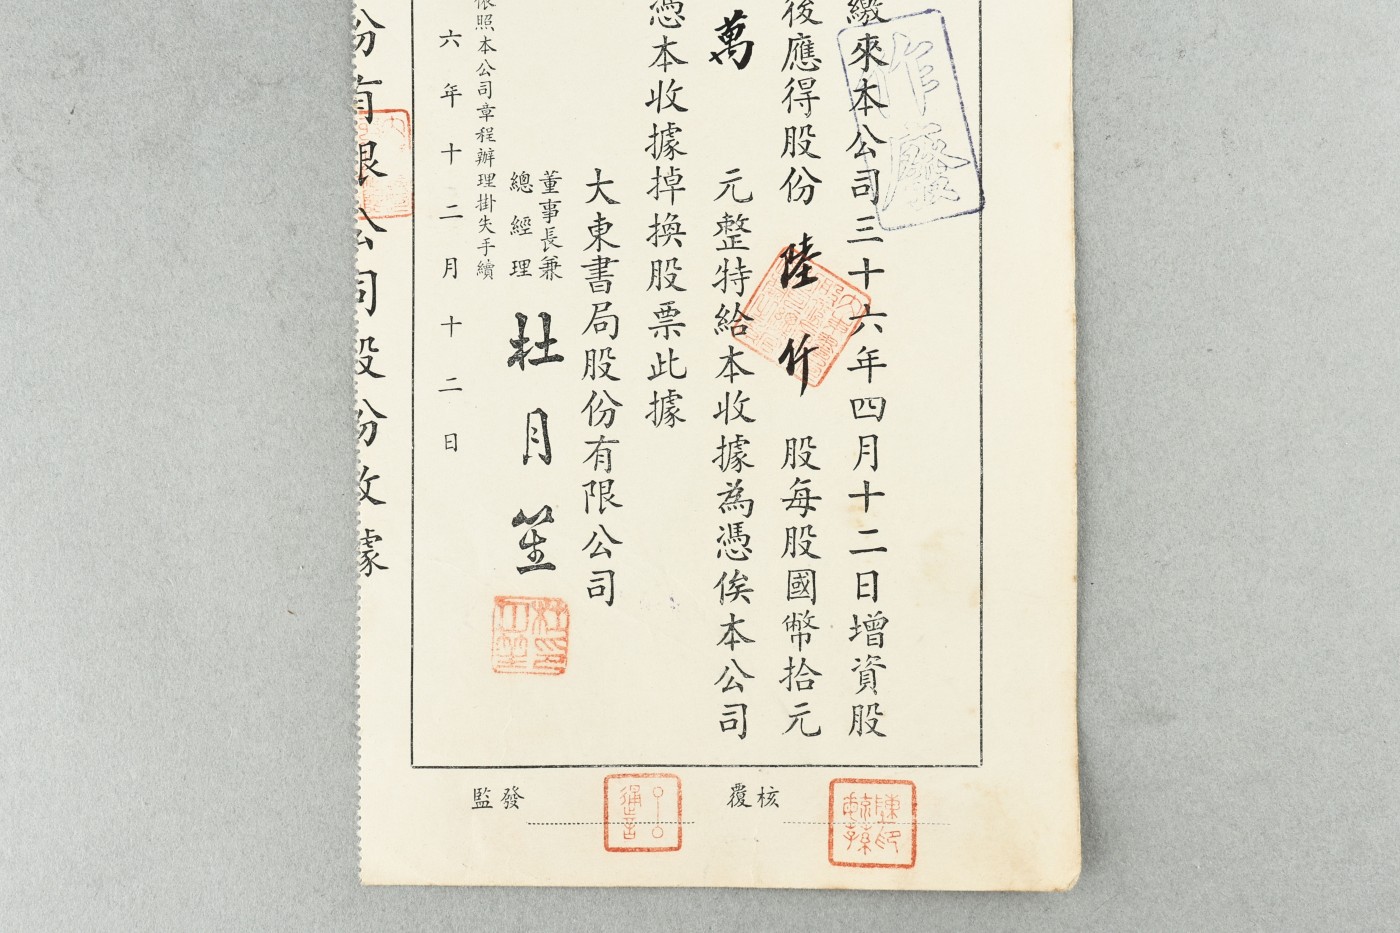 繳來本公司三十六年四月十二日增資股
後應得股份陸仟股每股國幣拾元
萬元整特給本收據為憑俟本公司
憑本收據掉換股票此據
大東書局股份有限公司
董事長兼
總經理
杜月笙
依照本公司章程辦理掛失手續
六年十二月十二日
份有限公司股份收據
作廢
覆核
監發